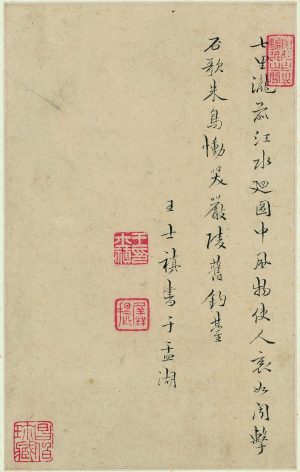 七里瀧前江水廻圖中風物使人哀如聞擊
石歌朱鳥慟哭嚴陵舊釣臺
王士禛書于盂湖